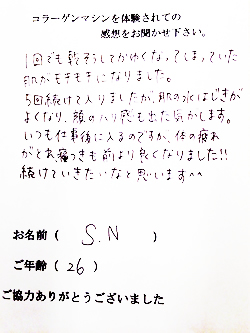 コラーゲンマシンを体験されての
感想をお聞かせ下さい。
1回でも乾そうしてかゆくなってしまっていた
肌がモチモチになりました。
5回続けて入りましたが、肌の水はじきが
よくなり、顔のハリ感も出た気がします。
いつも仕事後に入るのですが、体の疲れ
がとれ寝つきも前より良くなりました!!
続けていきたいなと思います^^
お名前( S.N )
ご年齢( 26 )
ご協力ありがとうございました